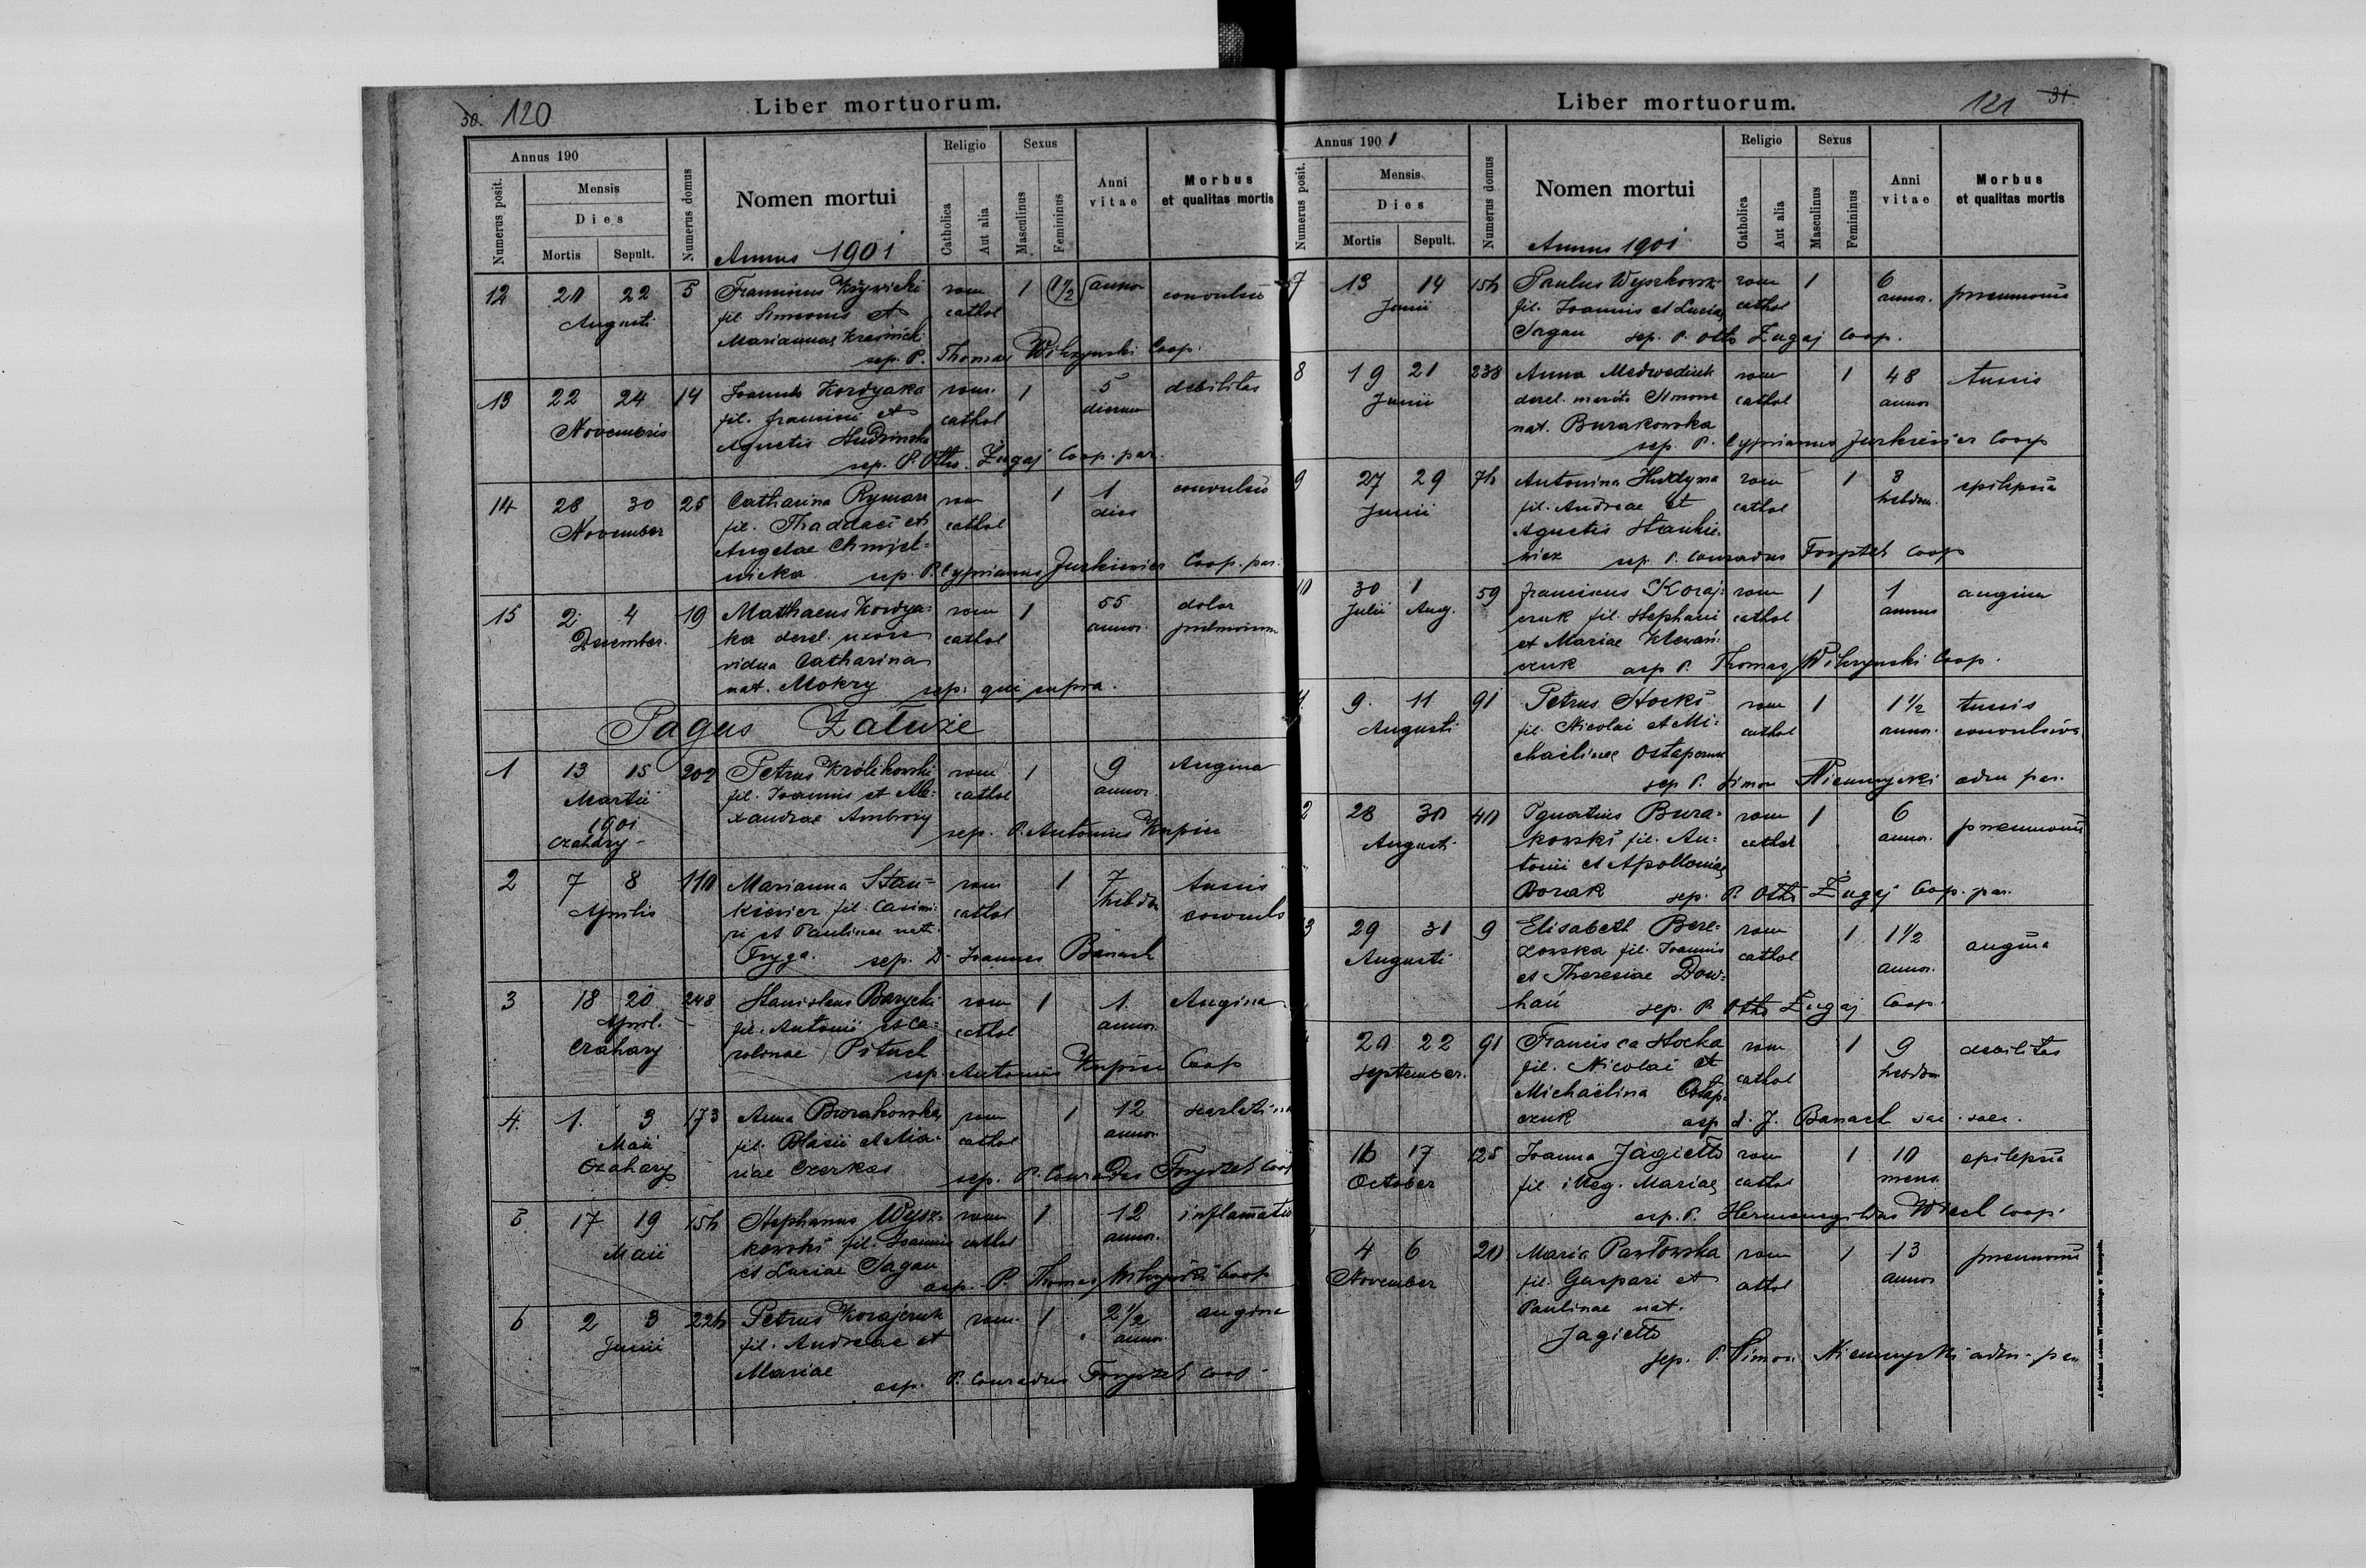 30. 120
Liber mortuorum.
Annus 190
Numerus posit.
Mensis
Dies
Mortis Sepult.
Numerus domus
Nomen mortui
Annus 1901
Religio
Catholica
Aut alia
Sexus
Masculinus
Femininus
Anni vitae
Morbus et qualitas mortis
12 21 22 5 Franciscus Krzywicki rom 1 1 1/2 annor convulsio
Augusti fil. Simeonis et cathol
Mariannae
sep. P. Thomas Wilczynski Coop.
13 22 24 14 Joannes Kordyaka rom. 1 5 debilitas
Novembris fil. Francisci et cathol dierum
Agnetis Hudzinska
sep. P. Otto. Zugaj Coop. par.
14 28 30 25 Catharina Rymarz rom 1 1 convulsio
November fil. Thaddaei et cathol dies
Angelae Chmiel-
nicka sep. P. Cyprianus Jurkiewicz Coop. par.
15 2 4 19 Mathaeus Kordya- rom 1 55 dolor
December. ka derel. uxore cathol annor. pulmonum
vidua Catharina
nat. Mokry sep. qui supra.
Pagus Załuże
1 13 15 202 Petrus Królikowski rom 1 9 Angina
Martii fil. Joannis et Ale- cathol annor.
1901 xandrae Ambrozy sep. P. Antonius Krupin
Czahary
2 7 8 110 Marianna Stan- rom 1 7 tussis
Aprilis kiewicz fil. Casimi- cathol hebdom convuls
ri et Paulinae nat.
Fryga. sep. D. Joannes Banach
3 18 20 248 Stanislaus Barycki rom 1 1 Angina
April. fil. Antonii et Ca- cathol annor.
Czahary rolinae Pituch
sep. Antonius Krupin Coop
4. 1. 3 173 Anna Burakowska rom 1 12 scarlatina
Maii fil. Blasii et Ma- cathol annor.
Czahary riae Czerkas sep. P. Conradus Fryszet Coop
5 17 19 156 Stephanus Wysz- rom 1 12 inflamatio
Maii kowski fil. Joannis cathol annor.
et Luciae Sagan
asp. P. Thomas Wilczynski Coop
6 2 3 226 Petrus Korajczuk rom. 1 2 1/2 angina
Junii fil. Andreae et annor.
Mariae asp. P. Conradus Fryszet Coop
Liber mortuorum.
121 31.
Annus 1901
Numerus posit.
Mensis
Dies
Mortis Sepult.
Numerus domus
Nomen mortui
Annus 1901
Religio
Catholica
Aut alia
Sexus
Masculinus
Femininus
Anni vitae
Morbus et qualitas mortis
7 13 14 156 Paulus Wyszkowski rom 1 6 pneumonia
Junii fil. Joannis et Luciae cathol annor.
Sagan sep. P. Otto Zugaj Coop.
8 19 21 238 Anna Medwediuk rom 1 48 tussis
Junii derel. marito Simone cathol annor
nat. Burakowska
sep. P. Cyprianus Jurkiewicz Coop
9 27 29 76 Antonina Hudyma rom 1 3 epilepsia
Junii fil. Andreae et cathol hebdom.
Agnetis Stankie-
wicz sep. P. Conradus Fryszet Coop
10 30 1 59 Franciscus Koraj- rom 1 1 angina
Julii Aug. czuk fil. Stephani cathol annus
et Mariae Klewań-
czuk asp P. Thomas Wilczynski Coop.
9. 11 91 Petrus Stocki rom 1 1 1/2 tussis
Augusti fil. Nicolai et Mi- cathol annor. convulsiva
chaëlinae Ostapczuk
sep P. Simon Niemczycki adm par.
28 30 40 Ignatius Bura- rom 1 6 pneumonia
Augusti kowski fil. An- cathol annor.
tonii et Apolloniae
Borak sep. P. Otto Zugaj Coop. par.
3 29 31 9 Elisabeth Bere- rom 1 1 1/2 angina
Augusti zowska fil. Joannis cathol annor.
et Theresiae Dow-
hań sep. P. Otto Zugaj Coop.
20 22 91 Francisca Stocka rom 1 9 debilitas
September. fil. Nicolai et cathol hebdom
Michaëlina Ostap-
czuk asp d. J. Banach
16 17 125 Joanna Jagiełło rom 1 10 epilepsia
October fil. illeg. Mariae cathol mens.
asp. P. Hermenegildus Wiech Coop.
4 6 20 Maria Pawłowska rom 1 13 pneumonia
November fil. Gaspari et cathol annor
Paulinae nat.
Jagiełło
sep. P. Simon Niemczycki adm. par